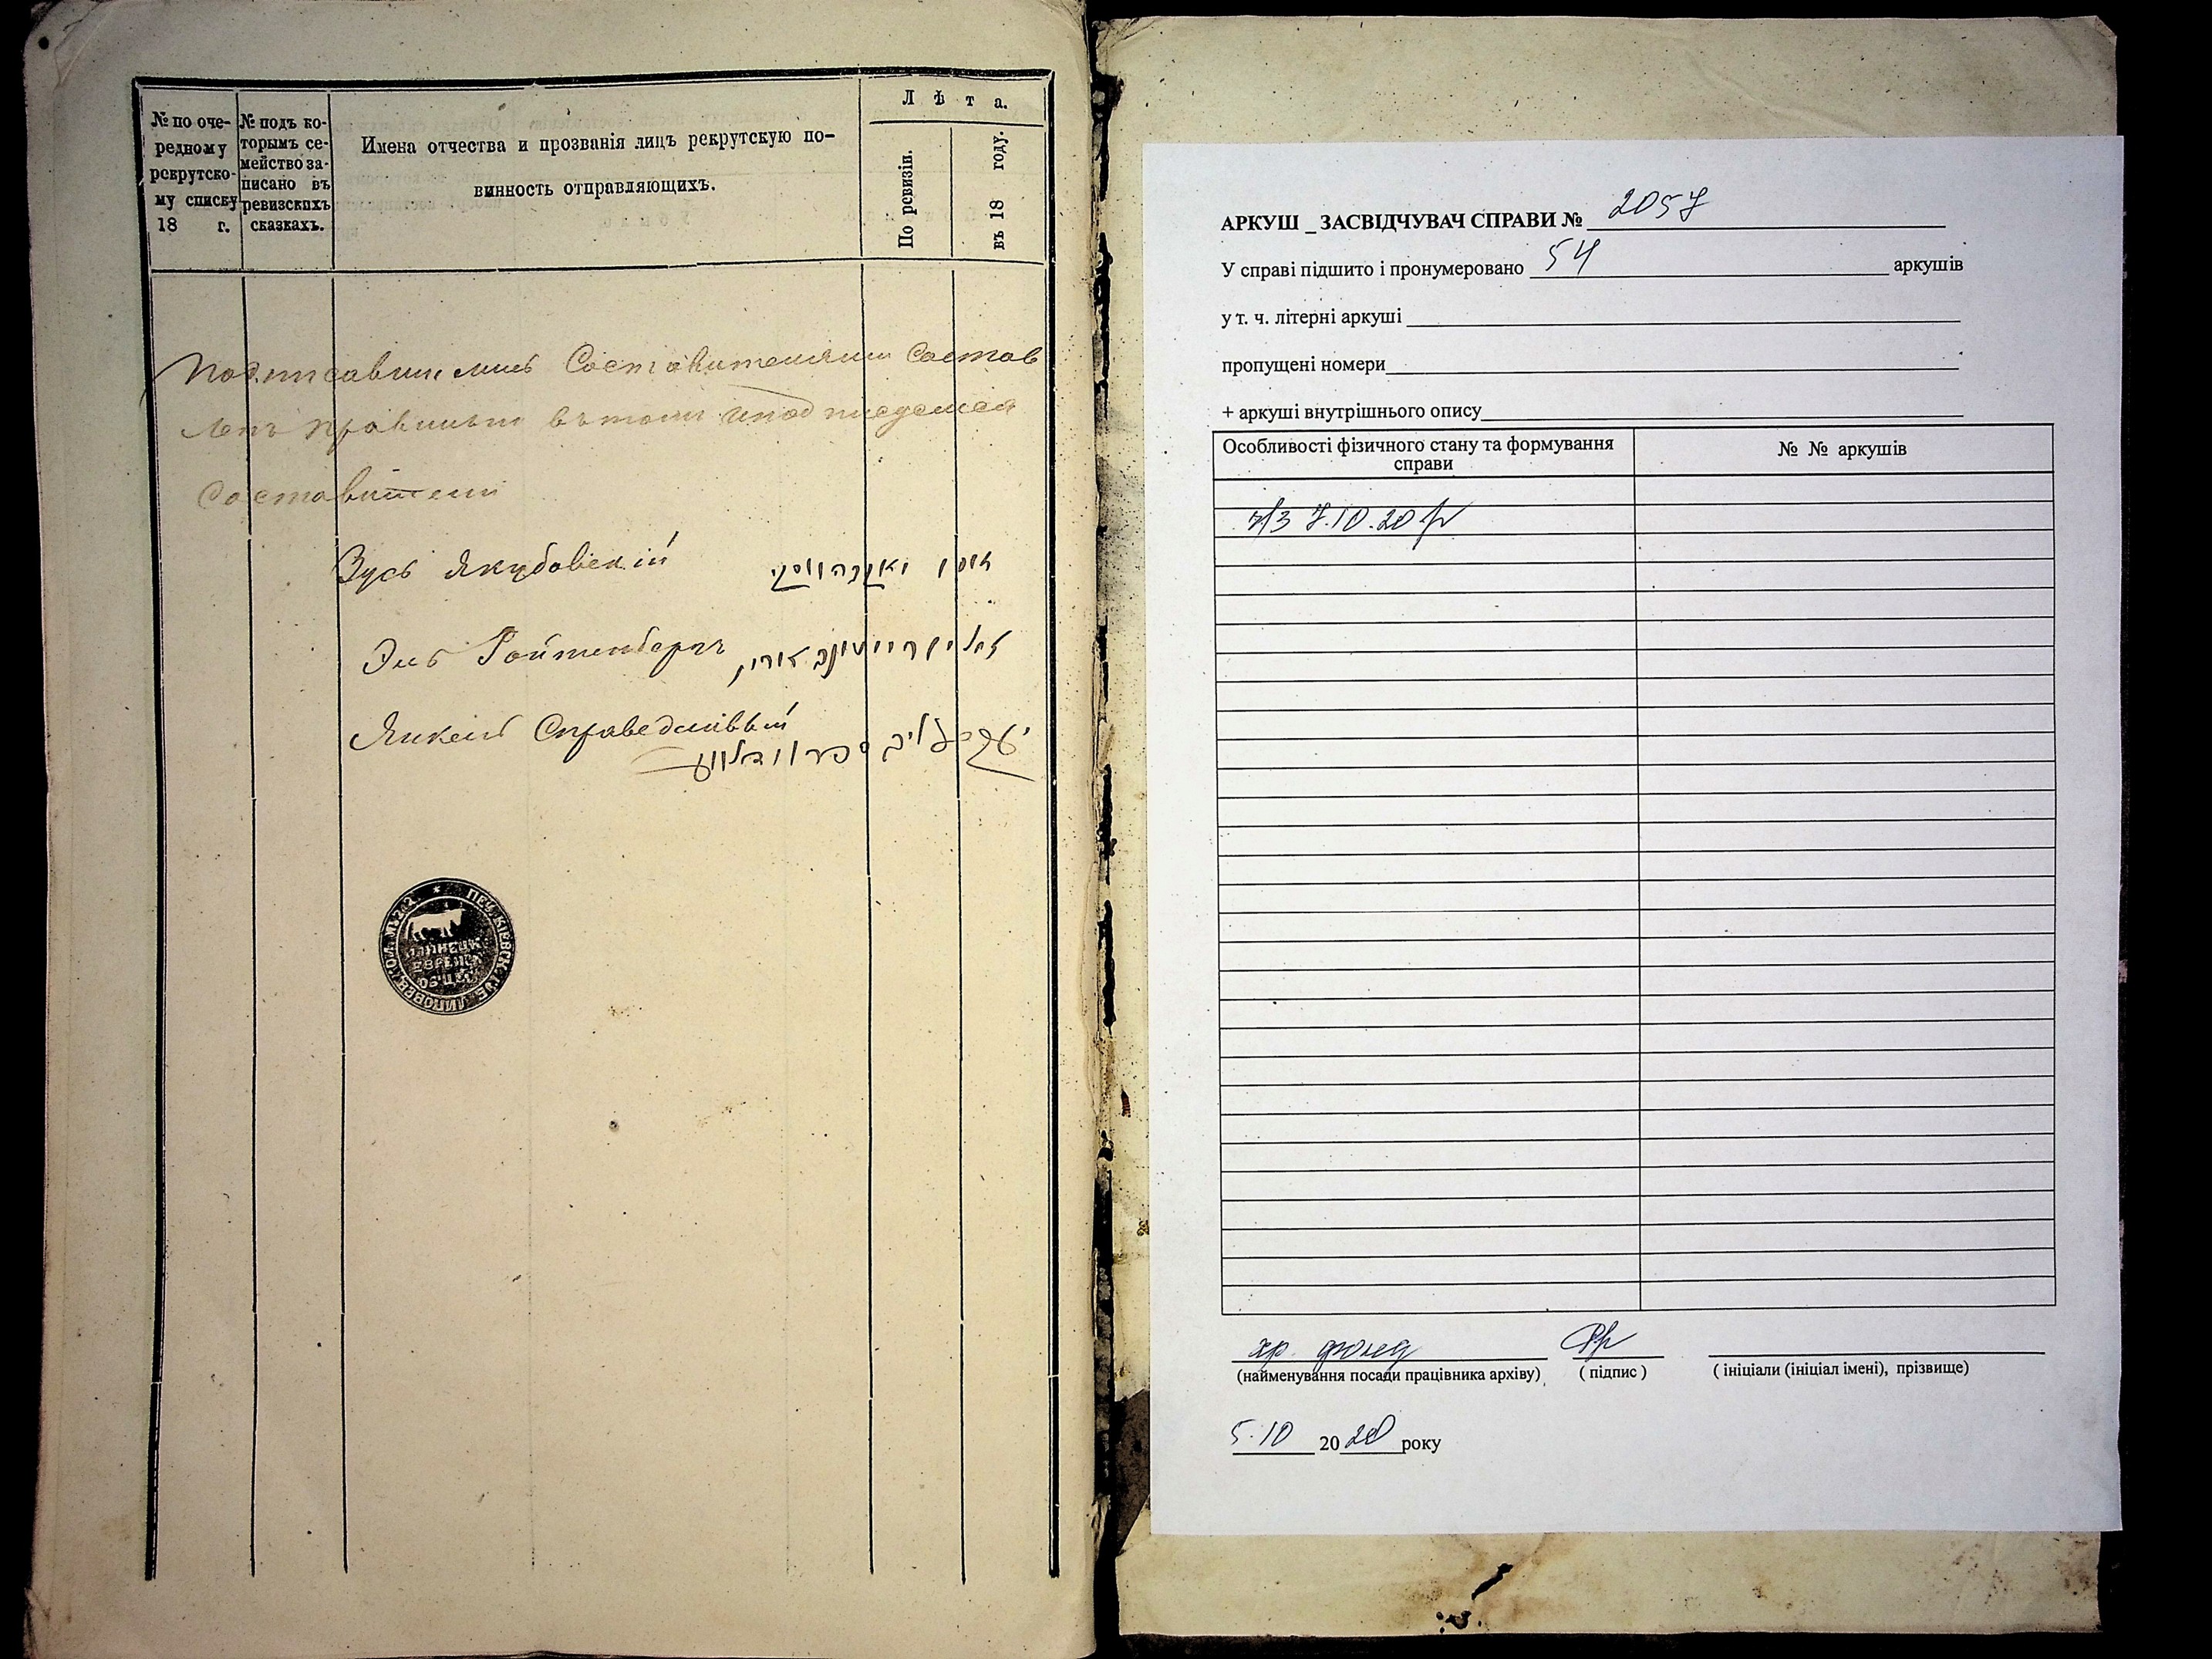 № по оче-
редному
рекрутско-
му списку
18 г.
№ подъ ко-
торымъ се-
мейство за-
писано въ
ревизскихъ
сказкахъ.
Имена отчества и прозванія лицъ рекрутскую по-
винность отправляющихъ.
Лѣта.
По ревизіи.
въ 18 году.
Составителями Состав
ленъ правильно въ томъ и подписуемся
Составители
Зусь Якубовскій
Эль Ройтенбергъ
Янкель Справедливый
ПЕЧ. КІЕВСК. ГУБ. ЛИПОВЕЦ
ЕВРЕЙСК
ОБЩЕС
АРКУШ _ ЗАСВІДЧУВАЧ СПРАВИ № 2057
У справі підшито і пронумеровано 54 аркушів
у т. ч. літерні аркуші
пропущені номери
+ аркуші внутрішнього опису
Особливості фізичного стану та формування
справи
№ № аркушів
7.10.20
хр. фонд
(найменування посади працівника архіву)
( підпис )
( ініціали (ініціал імені), прізвище)
5.10 2020 року